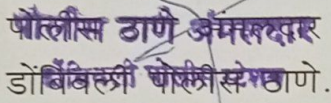 पोलीस ठाणे अंमलदार
डोंबिवली पोलीस ठाणे.